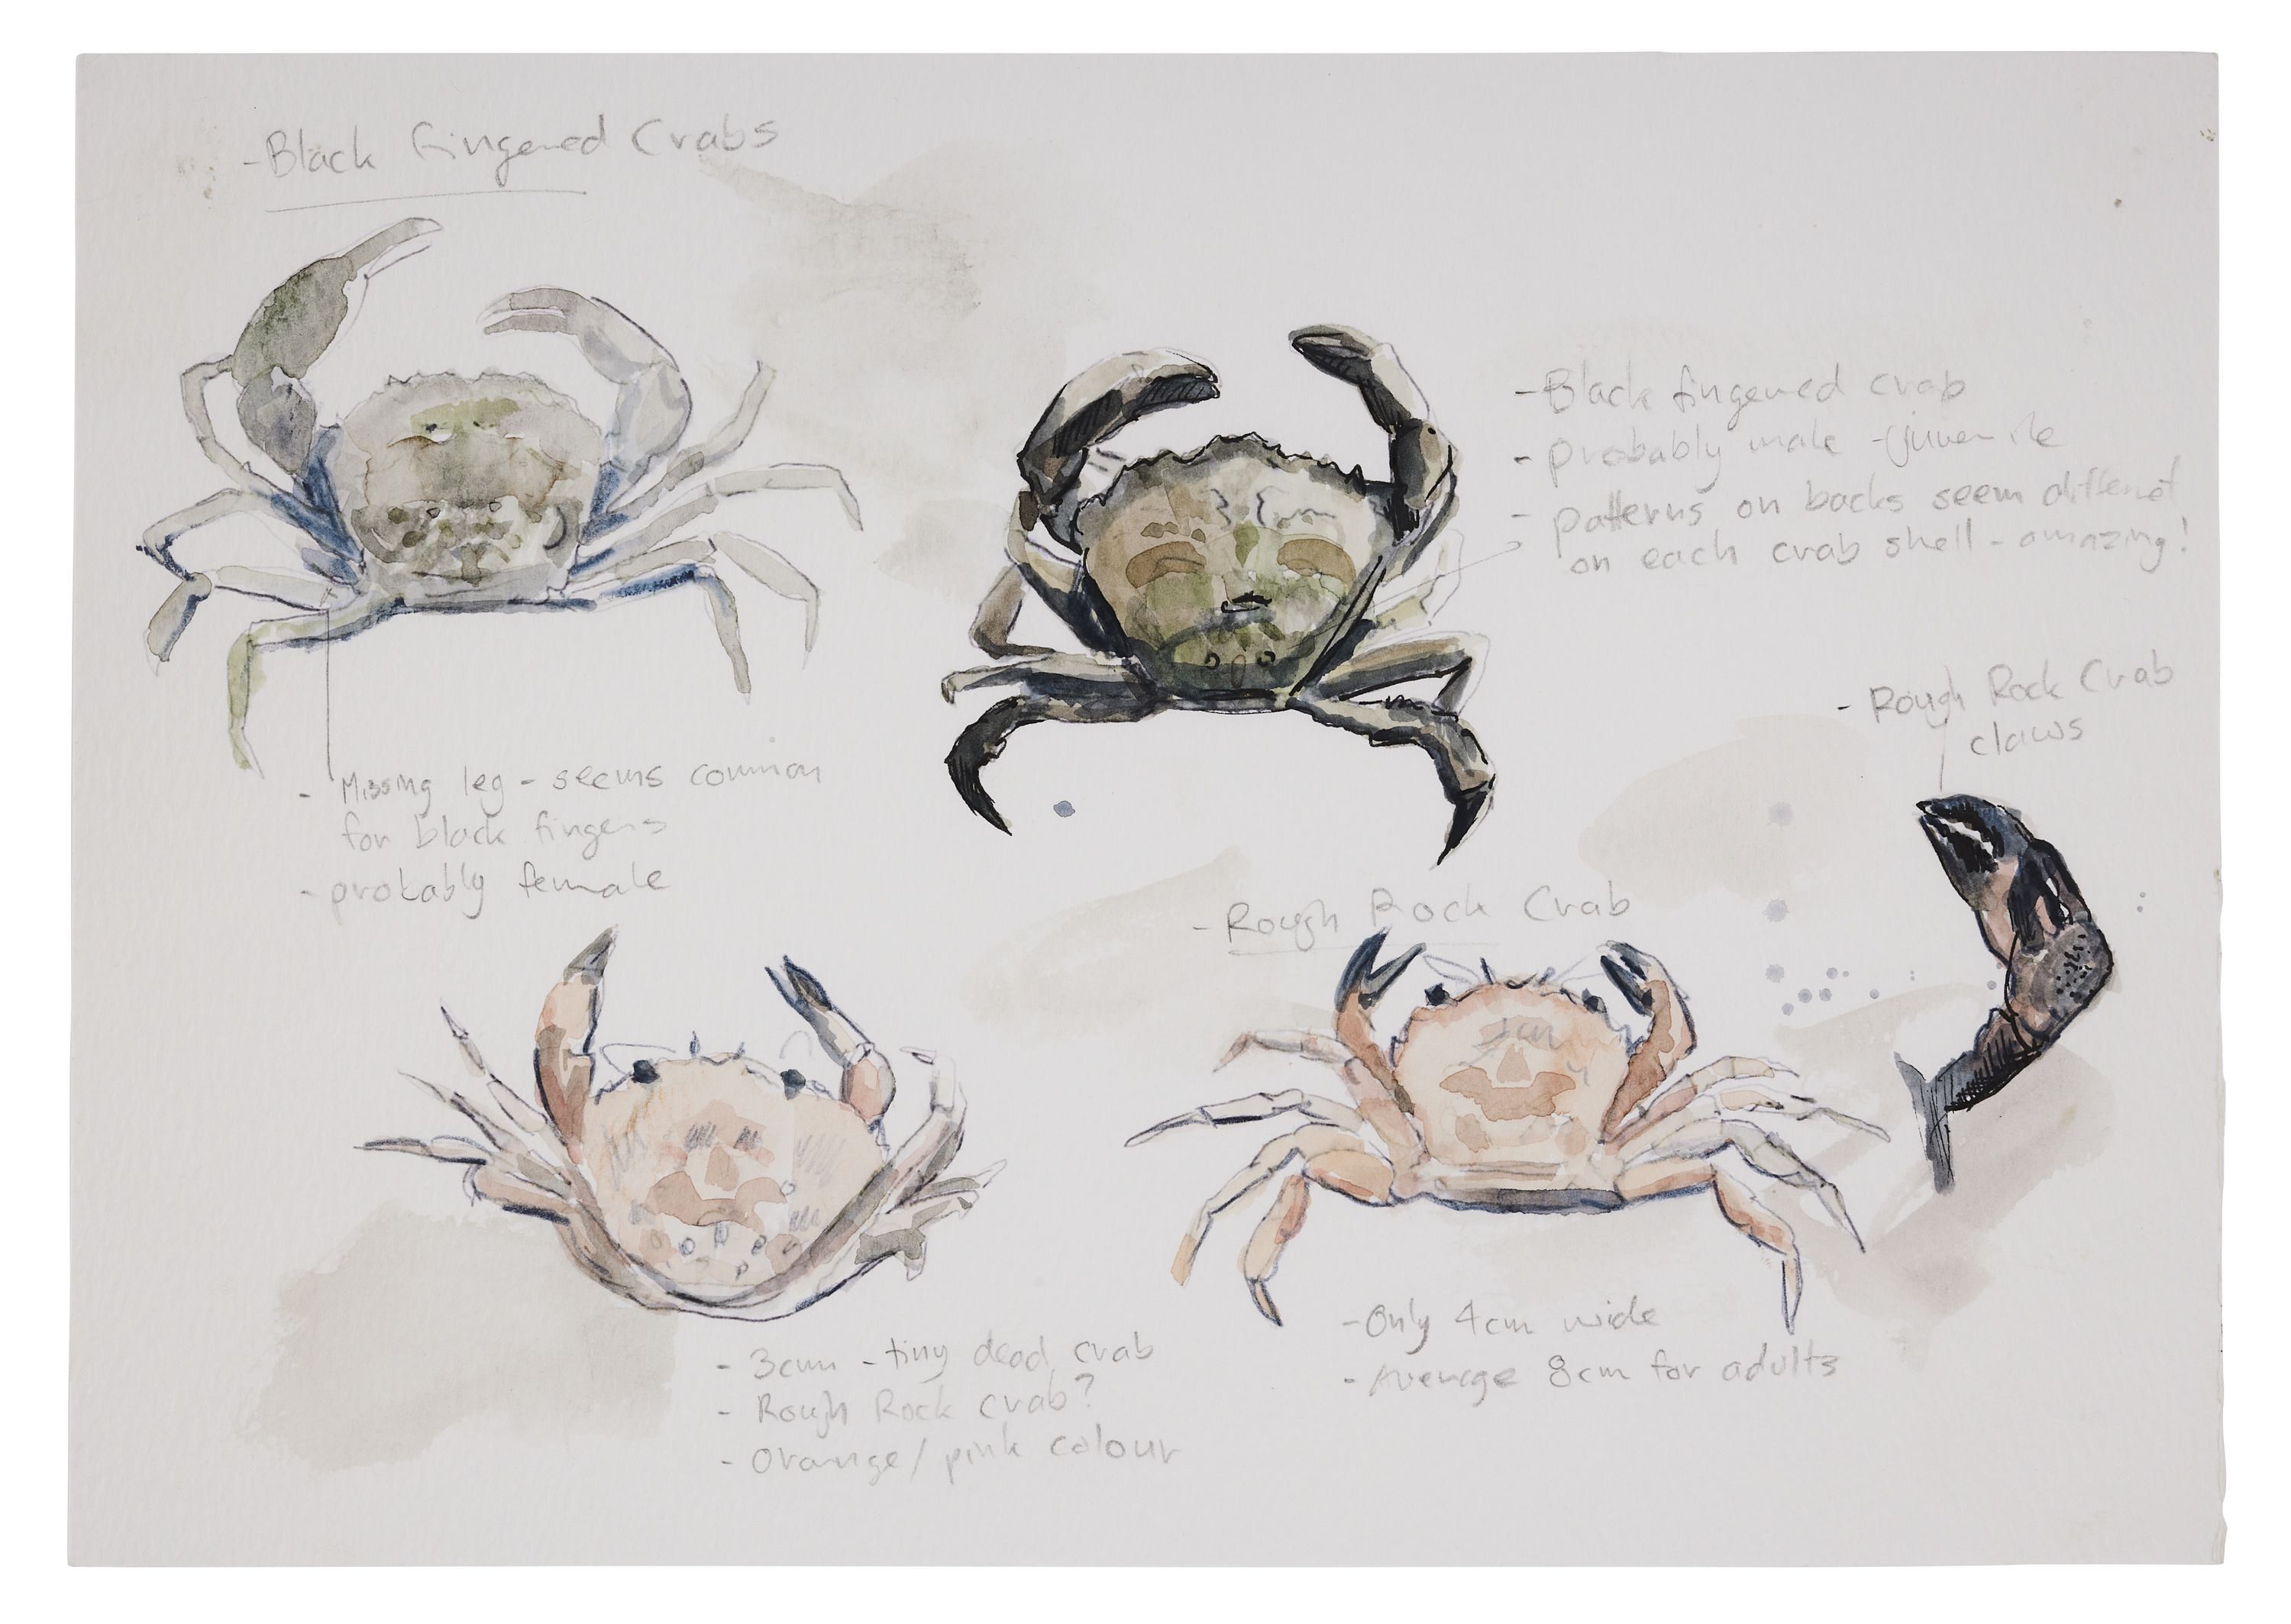 - Black fingered Crabs
- Missing leg - seems common
for black fingers
- probably female
- Black fingered crab
- probably male - juvenile
- patterns on backs seem different
on each crab shell - amazing!
- Rough Rock Crab
claws
- Rough Rock Crab
- 3cm - tiny dead crab
- Rough Rock crab?
- Orange/pink colour
- Only 4cm wide
- Average 8cm for adults